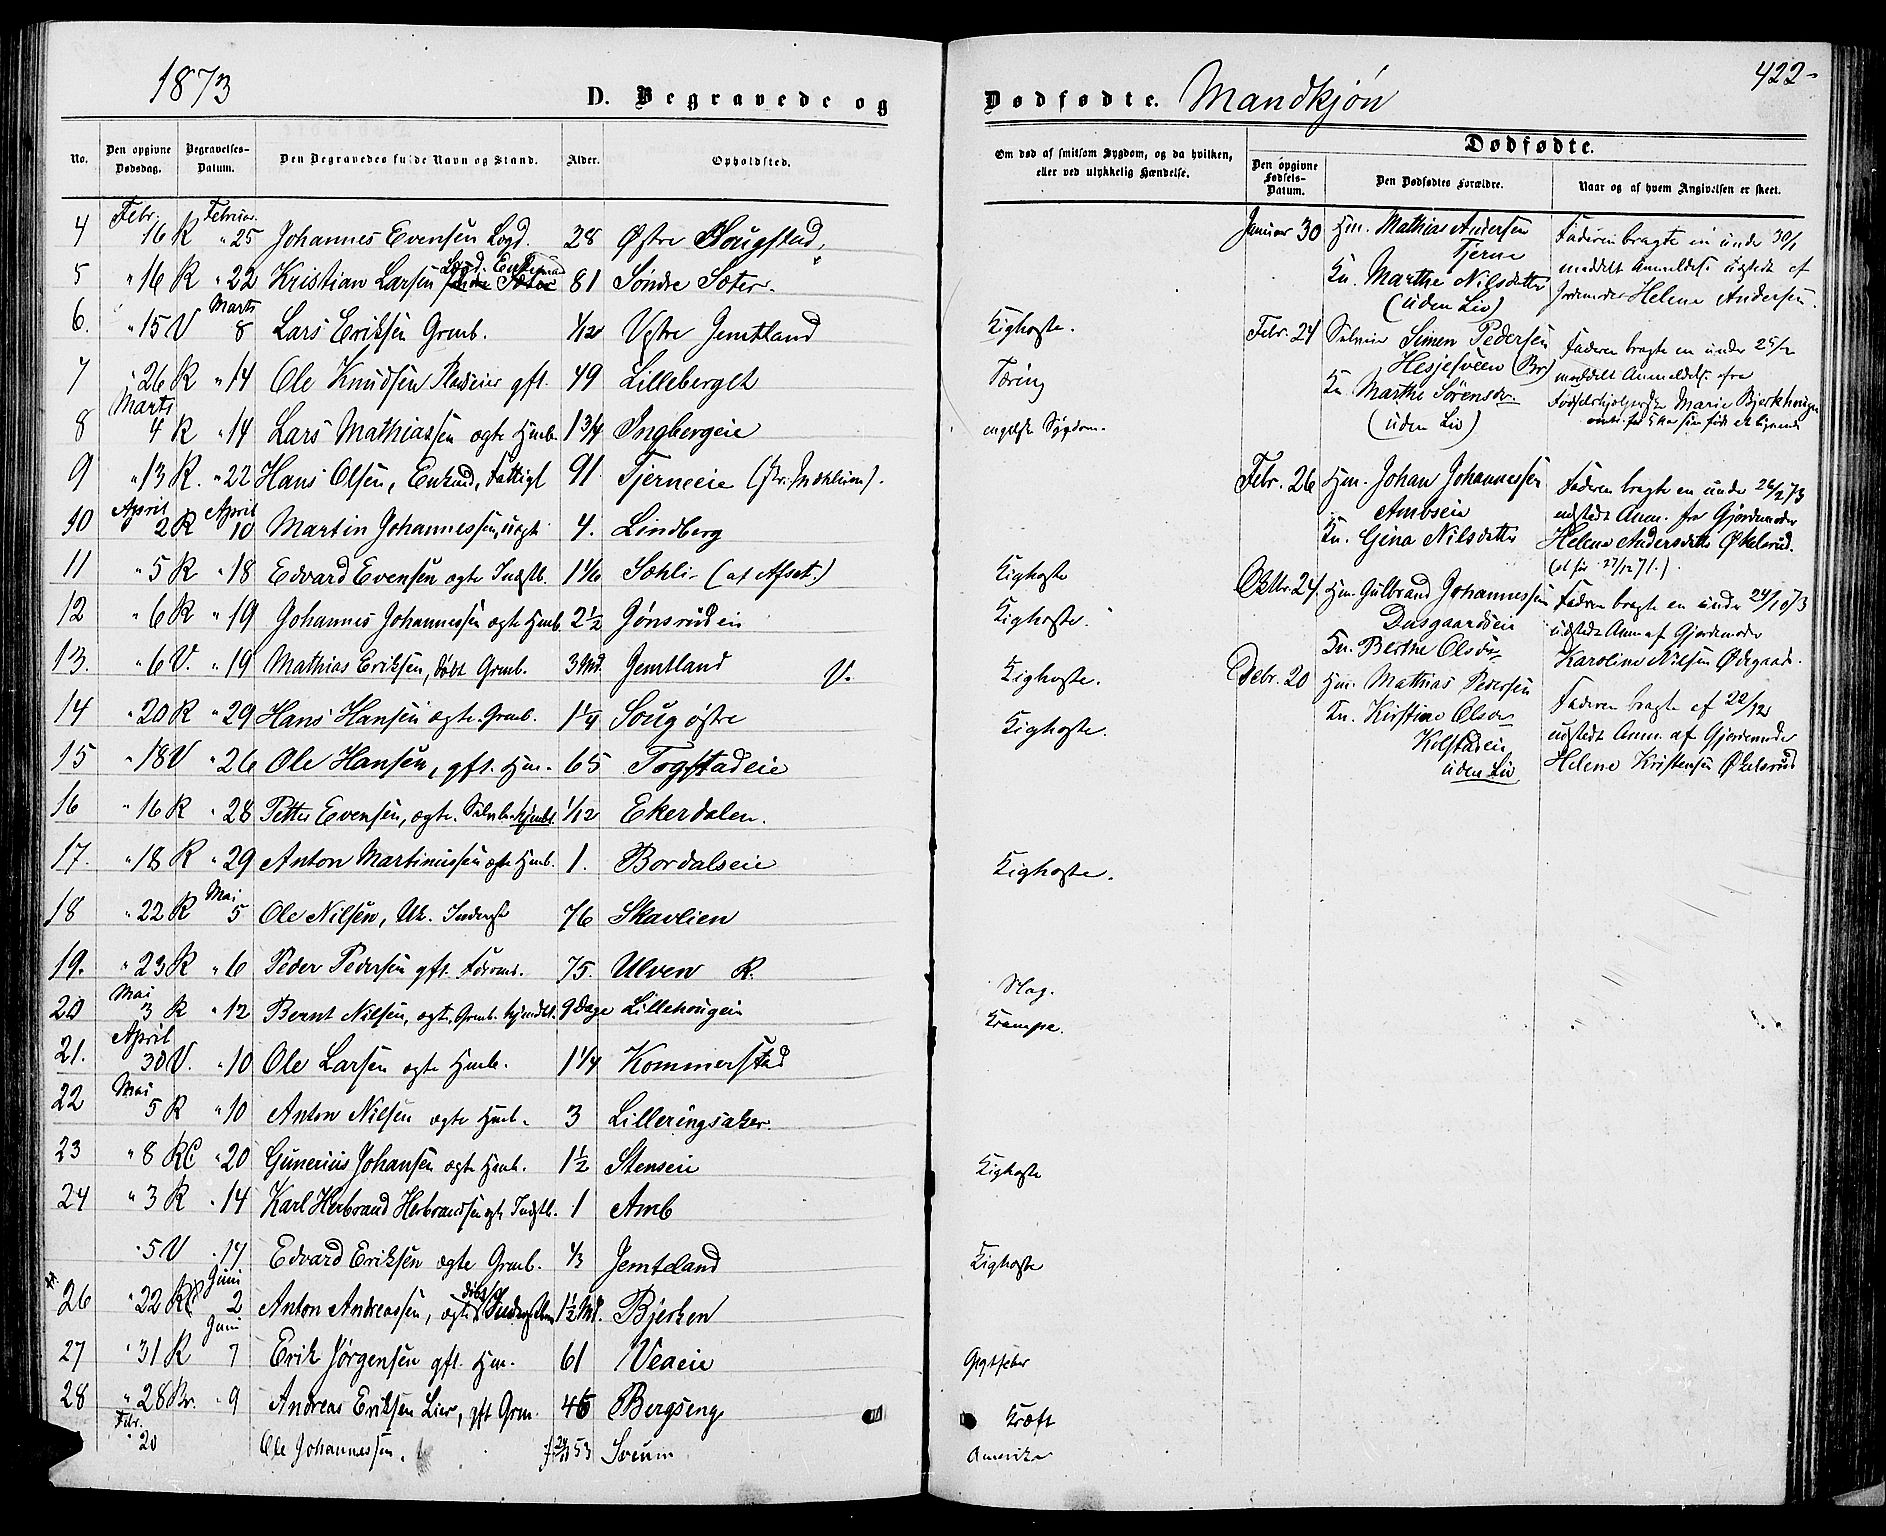 1873
D. Begravede og
Dødfødte. Mandkjøn
422
No.
Den opgivne Dødsdag.
Begravelses-Datum.
Den Begravedes fulde Navn og Stand.
Alder.
Opholdsted.
Om død af smitsom Sygdom, og da hvilken, eller ved ulykkelig Hændelse.
Dødfødte.
Den opgivne Fødsels-Datum.
Den Dødfødtes Forældre.
Naar og af hvem Angivelsen er skeet.
4 Febr. 16 R Februar 25 Johannes Evensen Logd. 28 Østre Hougstad
5 " 16 R " 22 Kristian Larsen Logd. Enkemand 81 Søndre Sæter
6. " 15 V Marts 8 Lars Eriksen Grmb. 1/12 Vestre Jemtland Kighoste.
7 " 26 R " 14 Ole Knudsen gft. 49 Lilleberget Tæring
8 Marts 4 R " 14 Lars Mathiassen ægte Hmb. 1 3/4 Ingbergeie engelsk Sygdom.
9 " 13 R. " 22 Hans Olsen, Enkmd, Fattigl 91. Tjerneeie
10 April 2 R April 10 Martin Johannessen, uægt. 4. Lindberg
11 " 5 R " 18 Edvard Evensen ægte Indstb. Sæhli (at Afset.) Kighoste
12 " 6 R " 19 Johannes Johannessen ægte Hmb. 2 1/2 Jønsrudeie Kighoste.
13. " 6 V. " 19 Mathias Eriksen, døbt Grmb. 3 Md. Jemtland V. Kighoste.
14 " 20 R " 29 Hans Hansen ægte Grmb. 1 1/4 Soug østre Kighoste.
15 " 18 V " 26 Ole Hansen, gft. Hm. 65 Togstadeie
16 " 16 R " 28 Petter Evensen, ægte. hjmdbt. 1/12 Ekerdalen.
17. " 18 R " 29 Anton Martinussen ægte Hmb. 1. Bordalseie Kighoste.
18 " 22 R Mai 5 Ole Nilsen, Uk. Inderst 76 Skavlien
19. " 23 R " 6 Peder Pedersen gft. 75. Ulven R. Slag.
20 Mai 3 R " 12 Bernt Nilsen, ægte, Grmb. hjmdbt. 9 Dage Lillehougeie Krampe.
21. April 30 V. " 10 Ole Larsen ægte Hmb. 1 1/4 Kommerstad
22 Mai 5 R " 10 Anton Nilsen ægte Hmb. 3 Lilleringsaker.
23 " 8 RC " 20 Gunerius Johansen ægte Hmb. 1 1/2 Stenseie Kighoste
24 " 3 R " 14 Karl Herbrand Herbrandsen ægte Indstb. 1 Amb
" 5 V " 17 Edvard Eriksen ægte Grmb. 1/3 Jemtland Kighoste
26 " 22 RC Juni 2 Anton Andreassen, ægte døbt 1 1/2 Md. Bjerken
27 " 31 R Juni 7 Erik Jørgensen gft. Hm. 61 Veaeie Gigtfeber
28 " 28 Br. " 9 Andreas Eriksen Lier, gft Grm. 46 Bergseng Kræft
Febr. " 20 Ole Johannessen. 53 Sveum Amerika
Januar 30 Hm. Mathias Andersen
Tjerne
Kn. Marthe Nilsdatter
(uden Liv)
Faderen bragte en under 30/1
meddelt Anmeldelse udstedt af
Jordemoder Helene Andersen.
Febr. 24 Selveier Simen Pedersen
Hesjesveen (Br)
Kn. Marthe Sørensdr.
(uden Liv)
Faderen bragte en under 25/2
meddelt Anmeldelse fra
Fødselshjelperske Marie Bjerkhougen
Febr. 26 Hm. Johan Johannessen
Ambseie
Kn. Gina Nilsdatter
Faderen bragte en under 26/2 73
udstedt Anm. fra Gjordemoder
Helene Andersdatter Økelsrud.
Oktbr. 24. Hm. Gulbrand Johannessen
Dasgaardseie
Kn. Berthe Olsdr
Faderen bragte en under 24/10 73
udstedt Anm af Gjordemoder
Karoline Nilsen Ødegaard.
Debr. 20 Hm. Mathias Pedersen
Kn. Kirstine Olsdr
Kolstadeie
uden Liv
Faderen bragte af 22/12
udstedt Anm. af Gjordemoder
Helene Kristensen Økelsrud